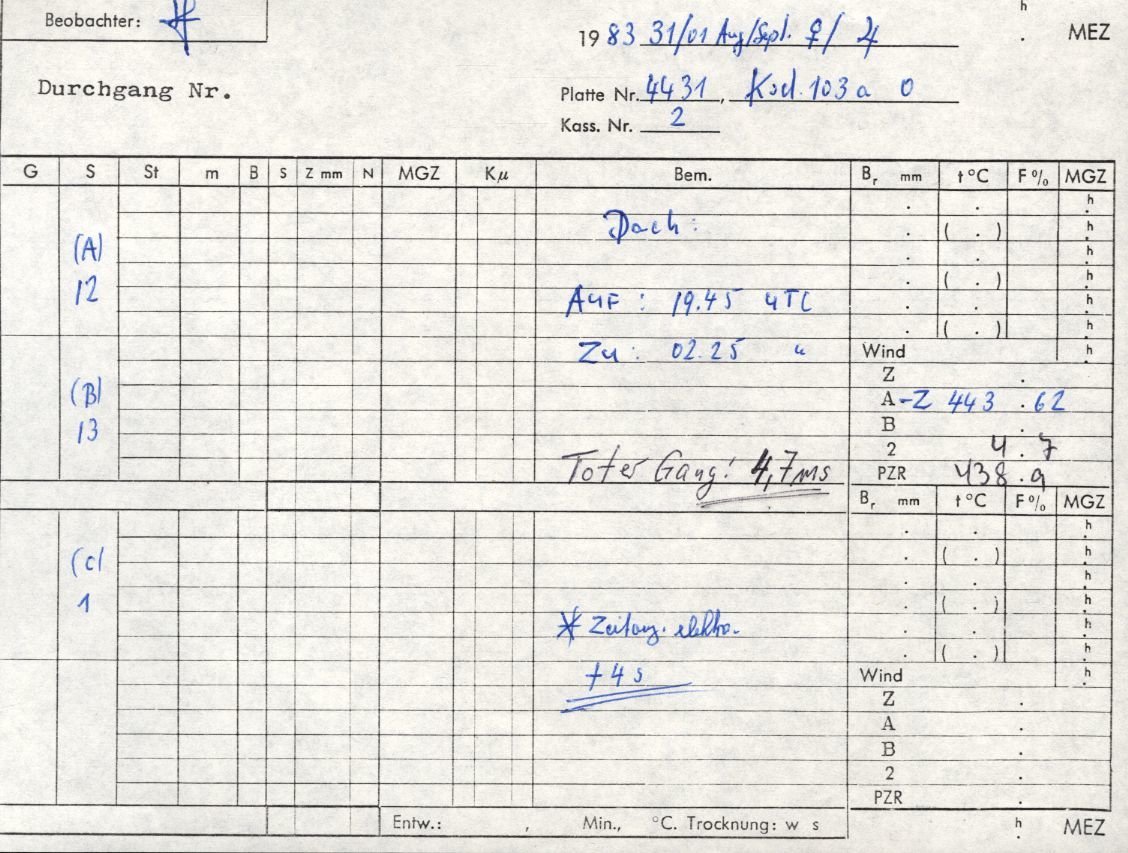 Beobachter:
h
1983 31/01 Aug/Sept. ♀/ ♃ . MEZ
Durchgang Nr.
Platte Nr. 4431, Kod. 103 a O
Kass. Nr. 2
G S St m B S Z mm N MGZ Kμ Bem. Br mm t °C F % MGZ
. . h
Dach: . ( . ) h
(A) . . h
12 . ( . ) h
Auf : 19.45 UTC . . h
. ( . ) h
Zu : 02.25 " Wind h
Z .
(B) A -Z 443 . 62
13 B .
2 4 . 7
Toter Gang! 4,7ms PZR 438 . 9
Br mm t °C F % MGZ
. . h
(C) . ( . ) h
. . h
1 . ( . ) h
* . . h
. ( . ) h
+ 4 s Wind h
Z .
A .
B .
2 .
PZR .
Entw.: , Min., °C. Trocknung: w s h . MEZ